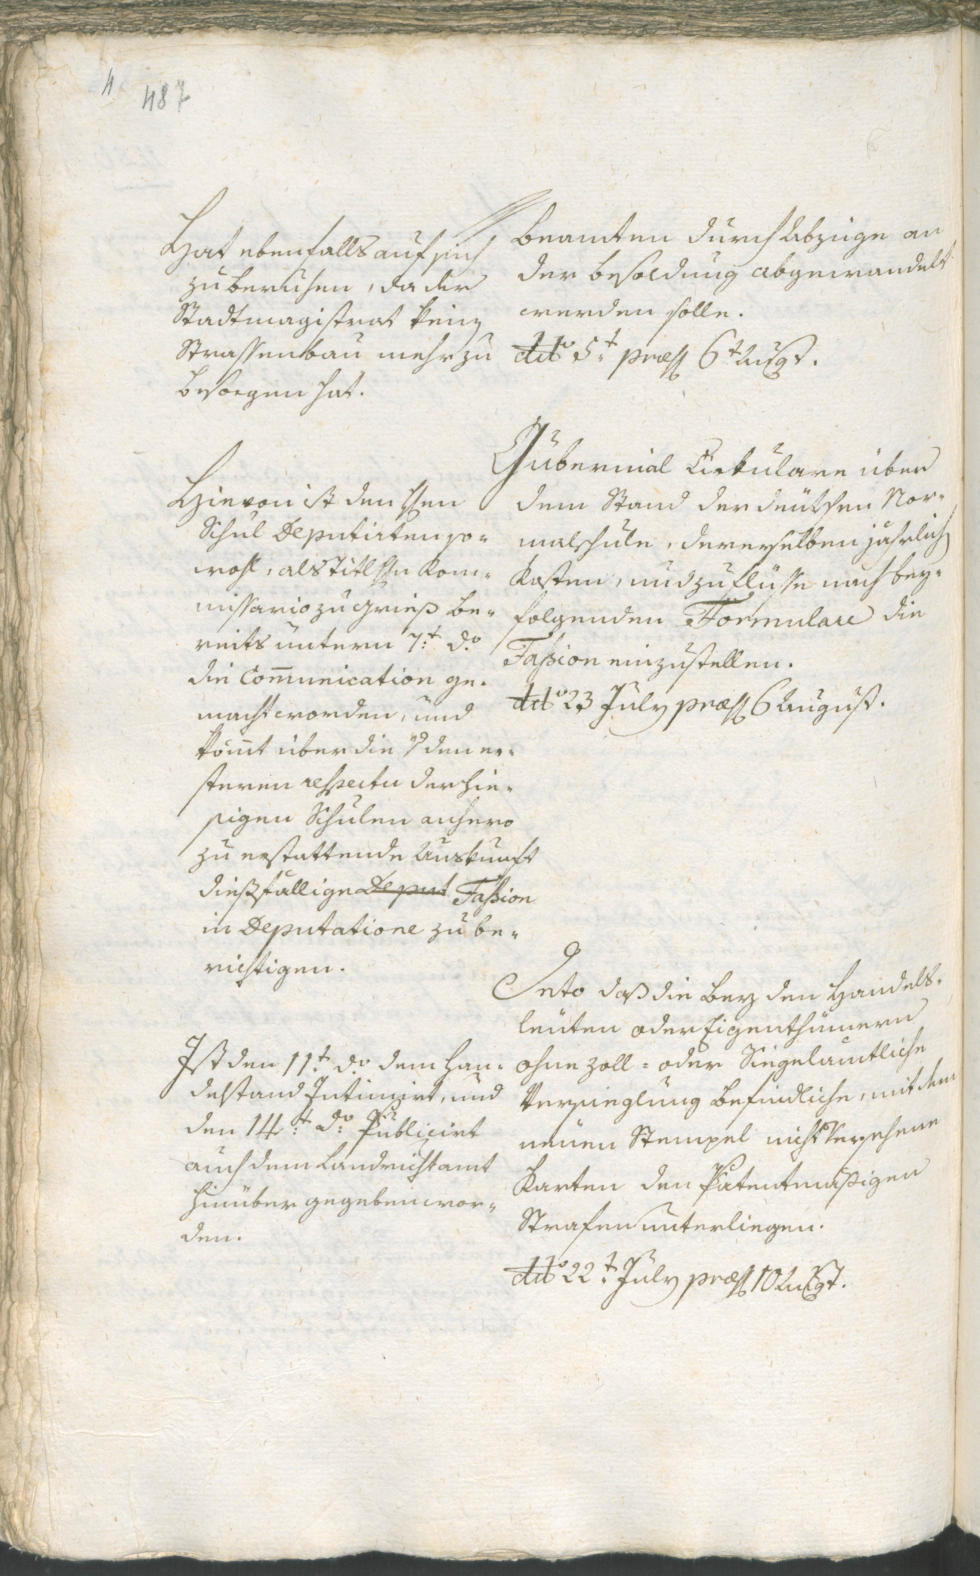 4
487
Hat ebenfalls auf sich
zu beruhen, da der
Stadtmagistrat keing
Strassenbau mehr zu
besorgen hat.
Hievon ist den Hen
Schul Deputirten so-
wohl, als Titl Hn Kom-
missario zu Gries be-
reits untern 7t. do.
die Communication ge-
macht worden, und
kommt über die den er-
steren respectu der hie-
sigen Schulen anhero
zu erstattende Auskunft
diesfällige Deput Fassion
in Deputatione zu be-
richtigen.
Ist den 11t. do. dem Han-
delstand Intimirt, und
den 14t. do. Publicirt
auch dem Landrichtamt
hinüber gegeben wor-
den.
beamten durch Abzüge an
der besoldung abgewandelt
werden solle.
ddo 5t. præs 6t Augst.
Gubernial Cirkulare über
dem Stand der deutschen Nor-
malschule, derenselben jährlich
Kosten, und zuflüsse nach bey-
folgenden Formulare die
Fassion einzustellen.
ddo 23 July præs 6 August.
Deto daß die bey den Handels-
leuten oder Eigenthümern
ohne zoll- oder Siegelämtliche
Versieglung befindliche, mit dem
neuen Stempel nicht Versehene
Karten den Patentmäsigen
Strafen unterliegen.
ddo 22t. July præs 10 Augst.